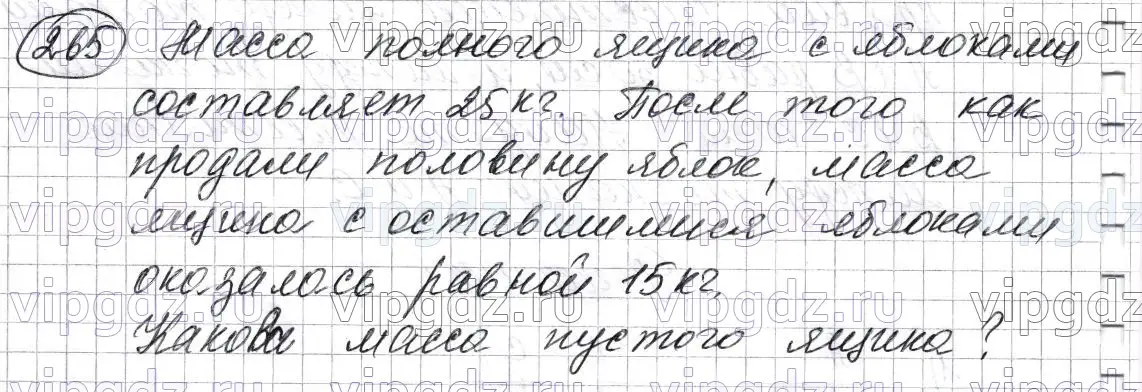 265 Масса полного ящика с яблоками
составляет 25 кг. После того как
продали половину яблок, масса
ящика с оставшимися яблоками
оказалась равной 15 кг.
Какова масса пустого ящика?
vipgdz.ru